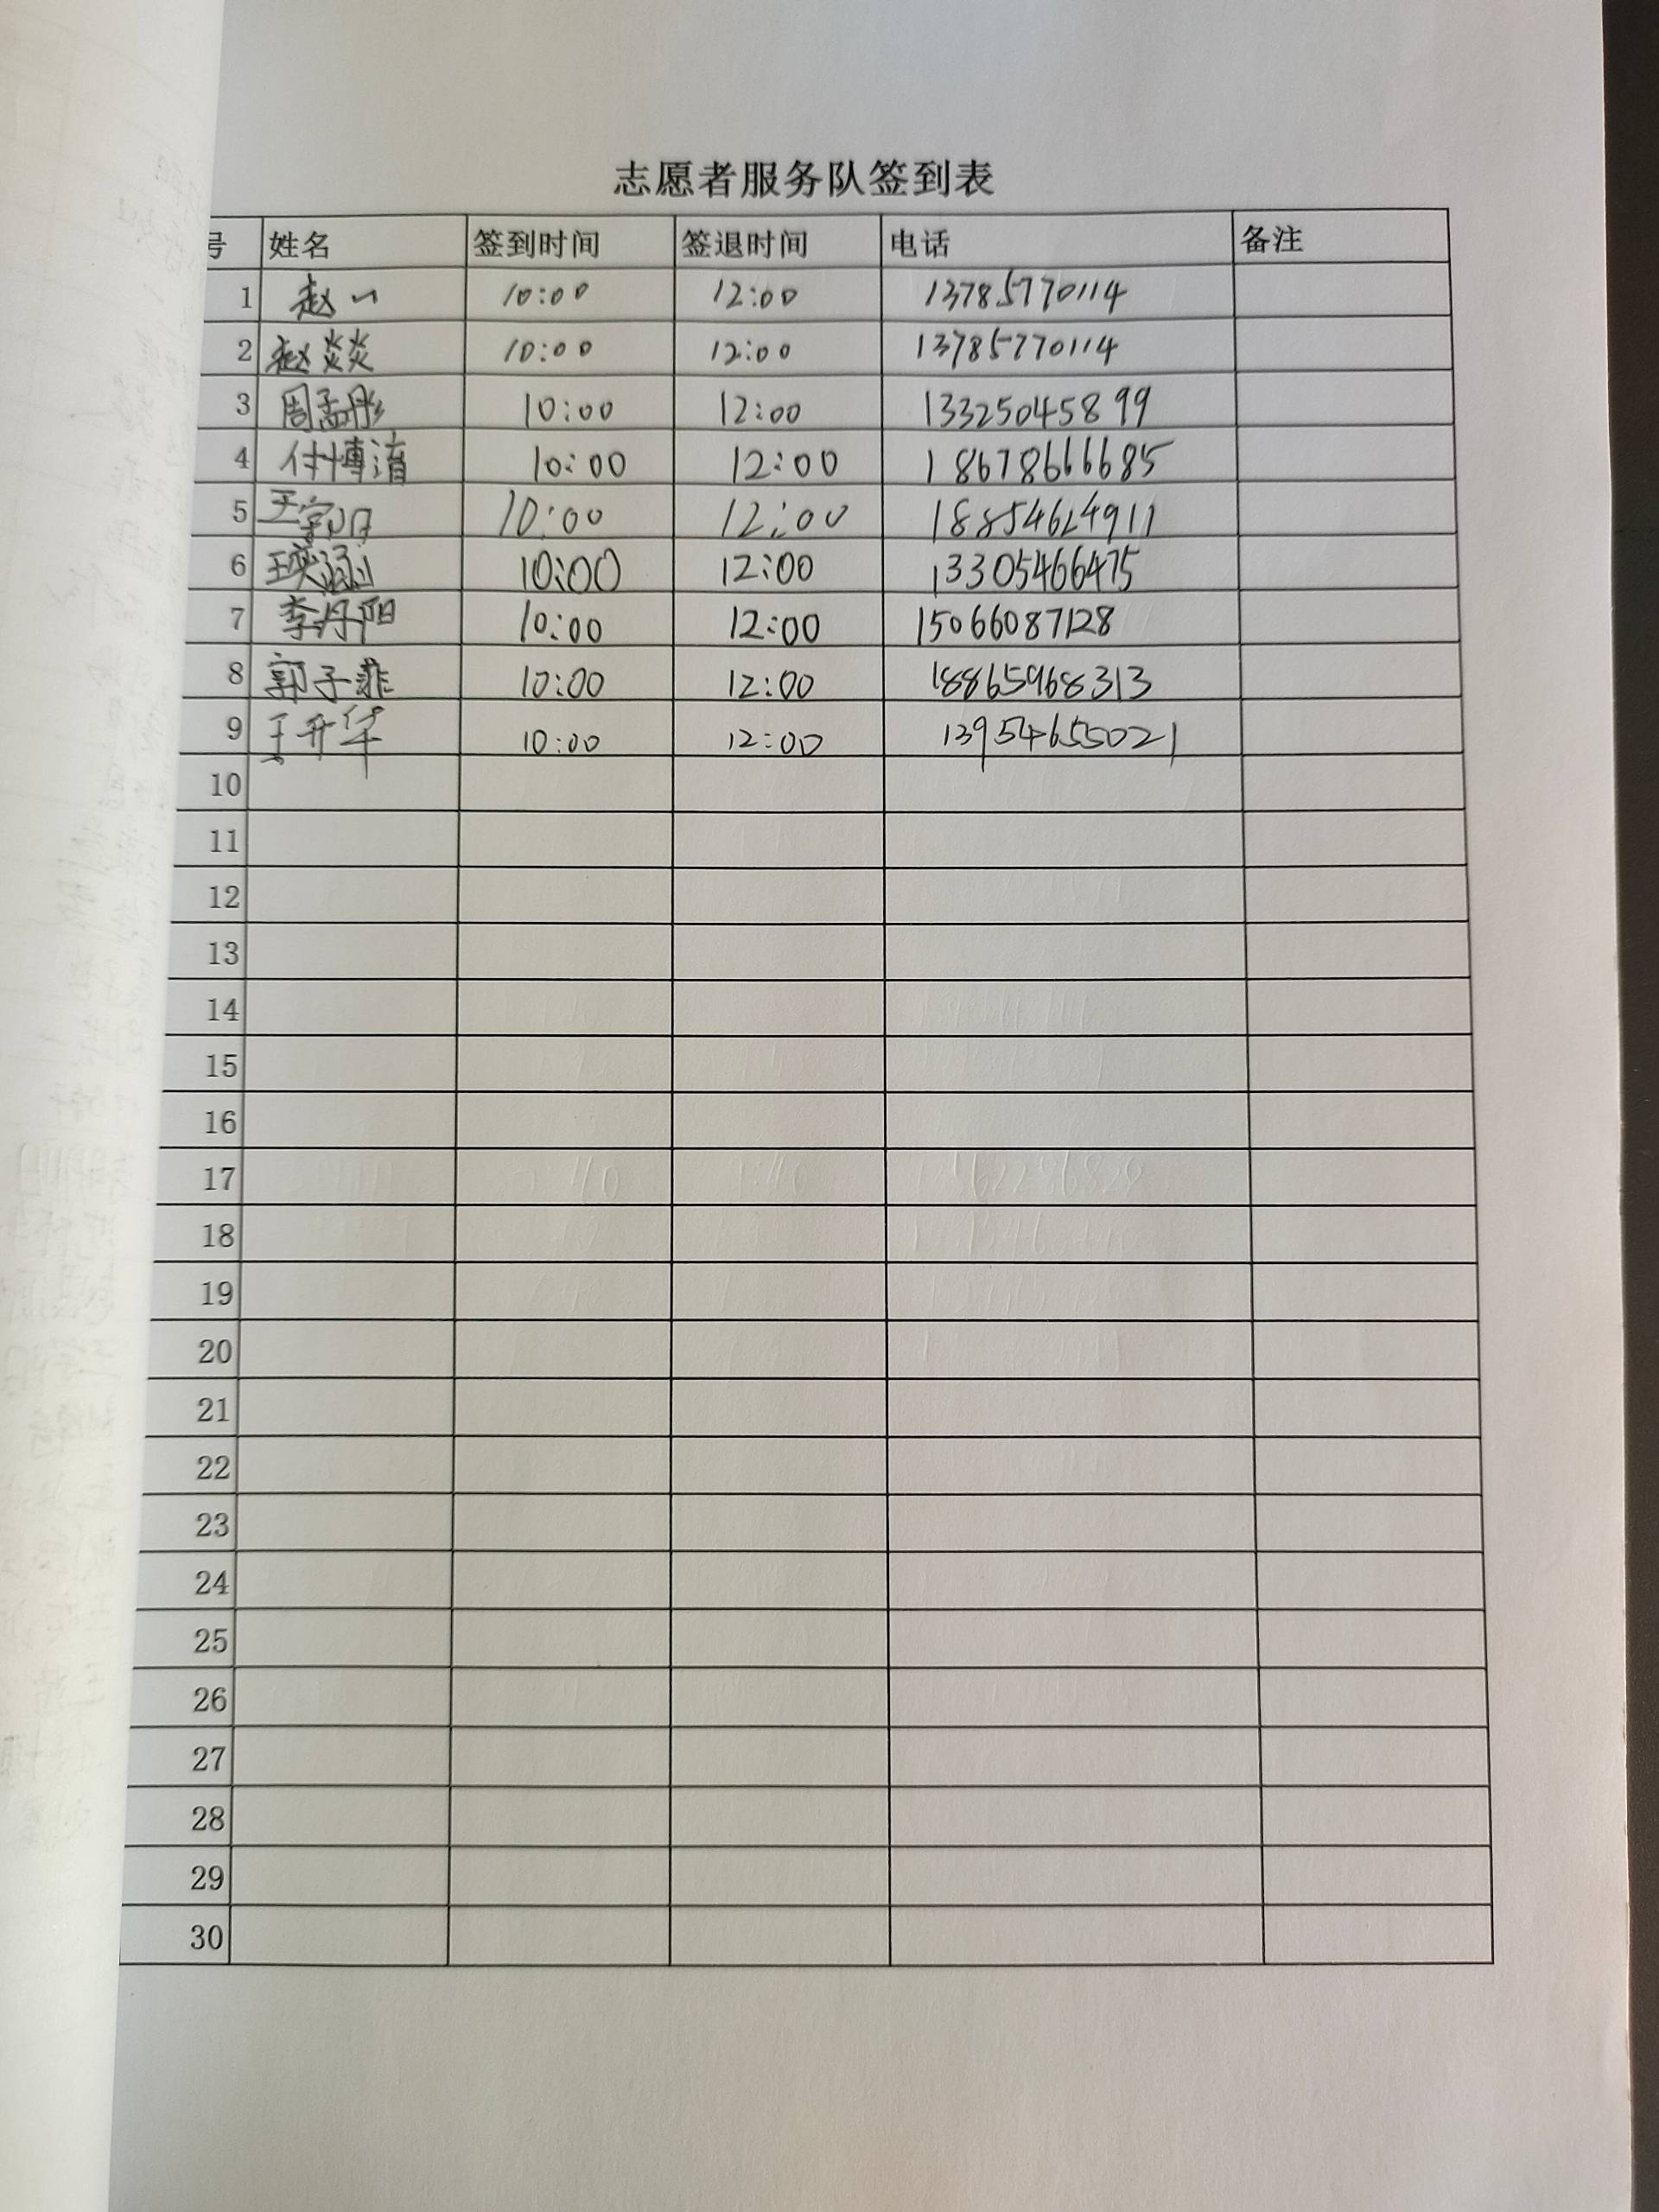 志愿者服务队签到表
号 姓名 签到时间 签退时间 电话 备注
1 赵一 10:00 12:00 13785770114
2 赵炎炎 10:00 12:00 13785770114
3 周孟彤 10:00 12:00 13325045899
4 付博淯 10:00 12:00 18678666685
5 10:00 12:00 18854624911
6 10:00 12:00 13305466475
7 李丹阳 10:00 12:00 15066087128
8 郭子菲 10:00 12:00 18865968313
9 王升华 10:00 12:00 13954655021
10
11
12
13
14
15
16
17
18
19
20
21
22
23
24
25
26
27
28
29
30